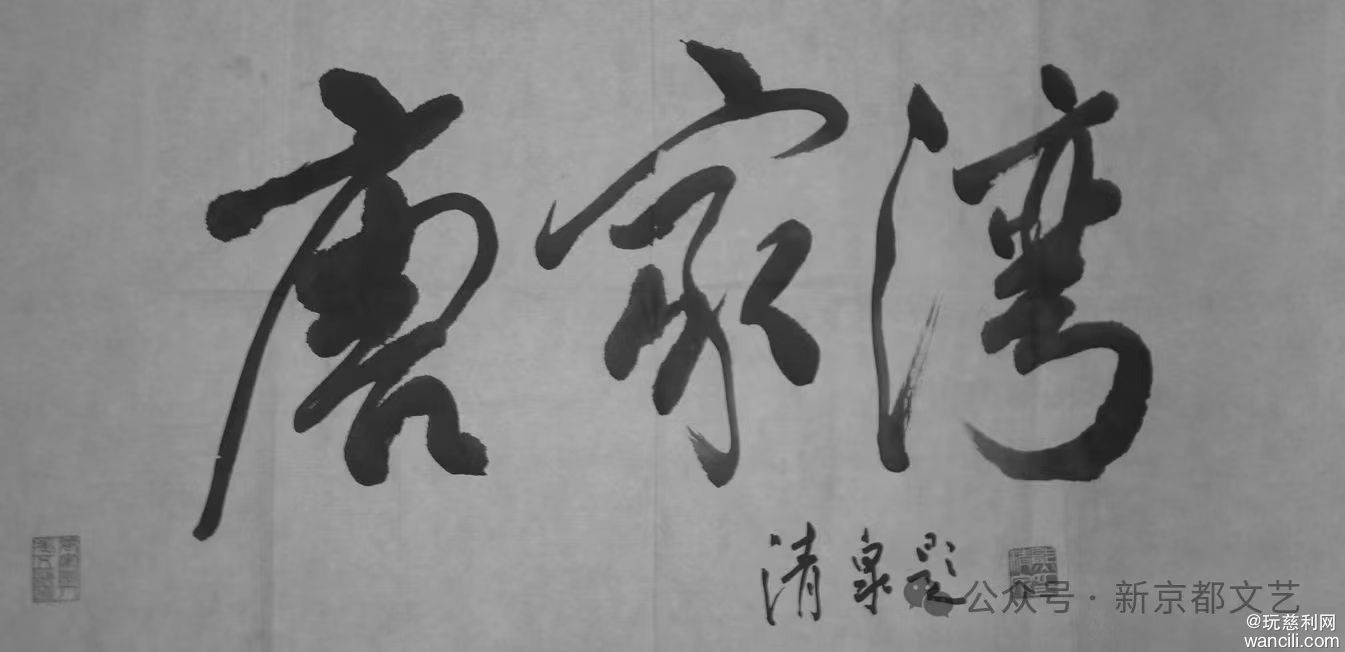 唐家湾
清泉题
公众号·新京都文艺
@玩慈利网
wancili.com